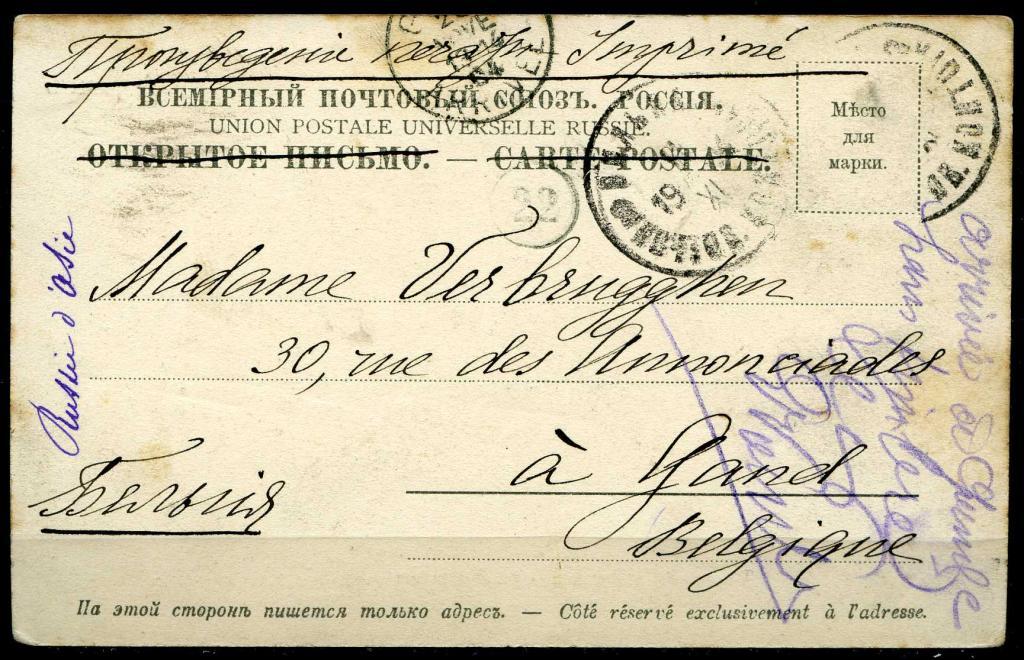 Произведеніе печати Imprimé
ВСЕМІРНЫЙ ПОЧТОВЫЙ СОЮЗЪ. РОССІЯ.
UNION POSTALE UNIVERSELLE RUSSIE.
ОТКРЫТОЕ ПИСЬМО. — CARTE POSTALE.
Мѣсто
для
марки.
22
Madame Verbrugghen
30, rue des Annonciades
à Gand
Belgique
Бельгія
Russie d'asie
arrivé à
sans timbre
На этой сторонѣ пишется только адресъ. — Côté réservé exclusivement à l'adresse.